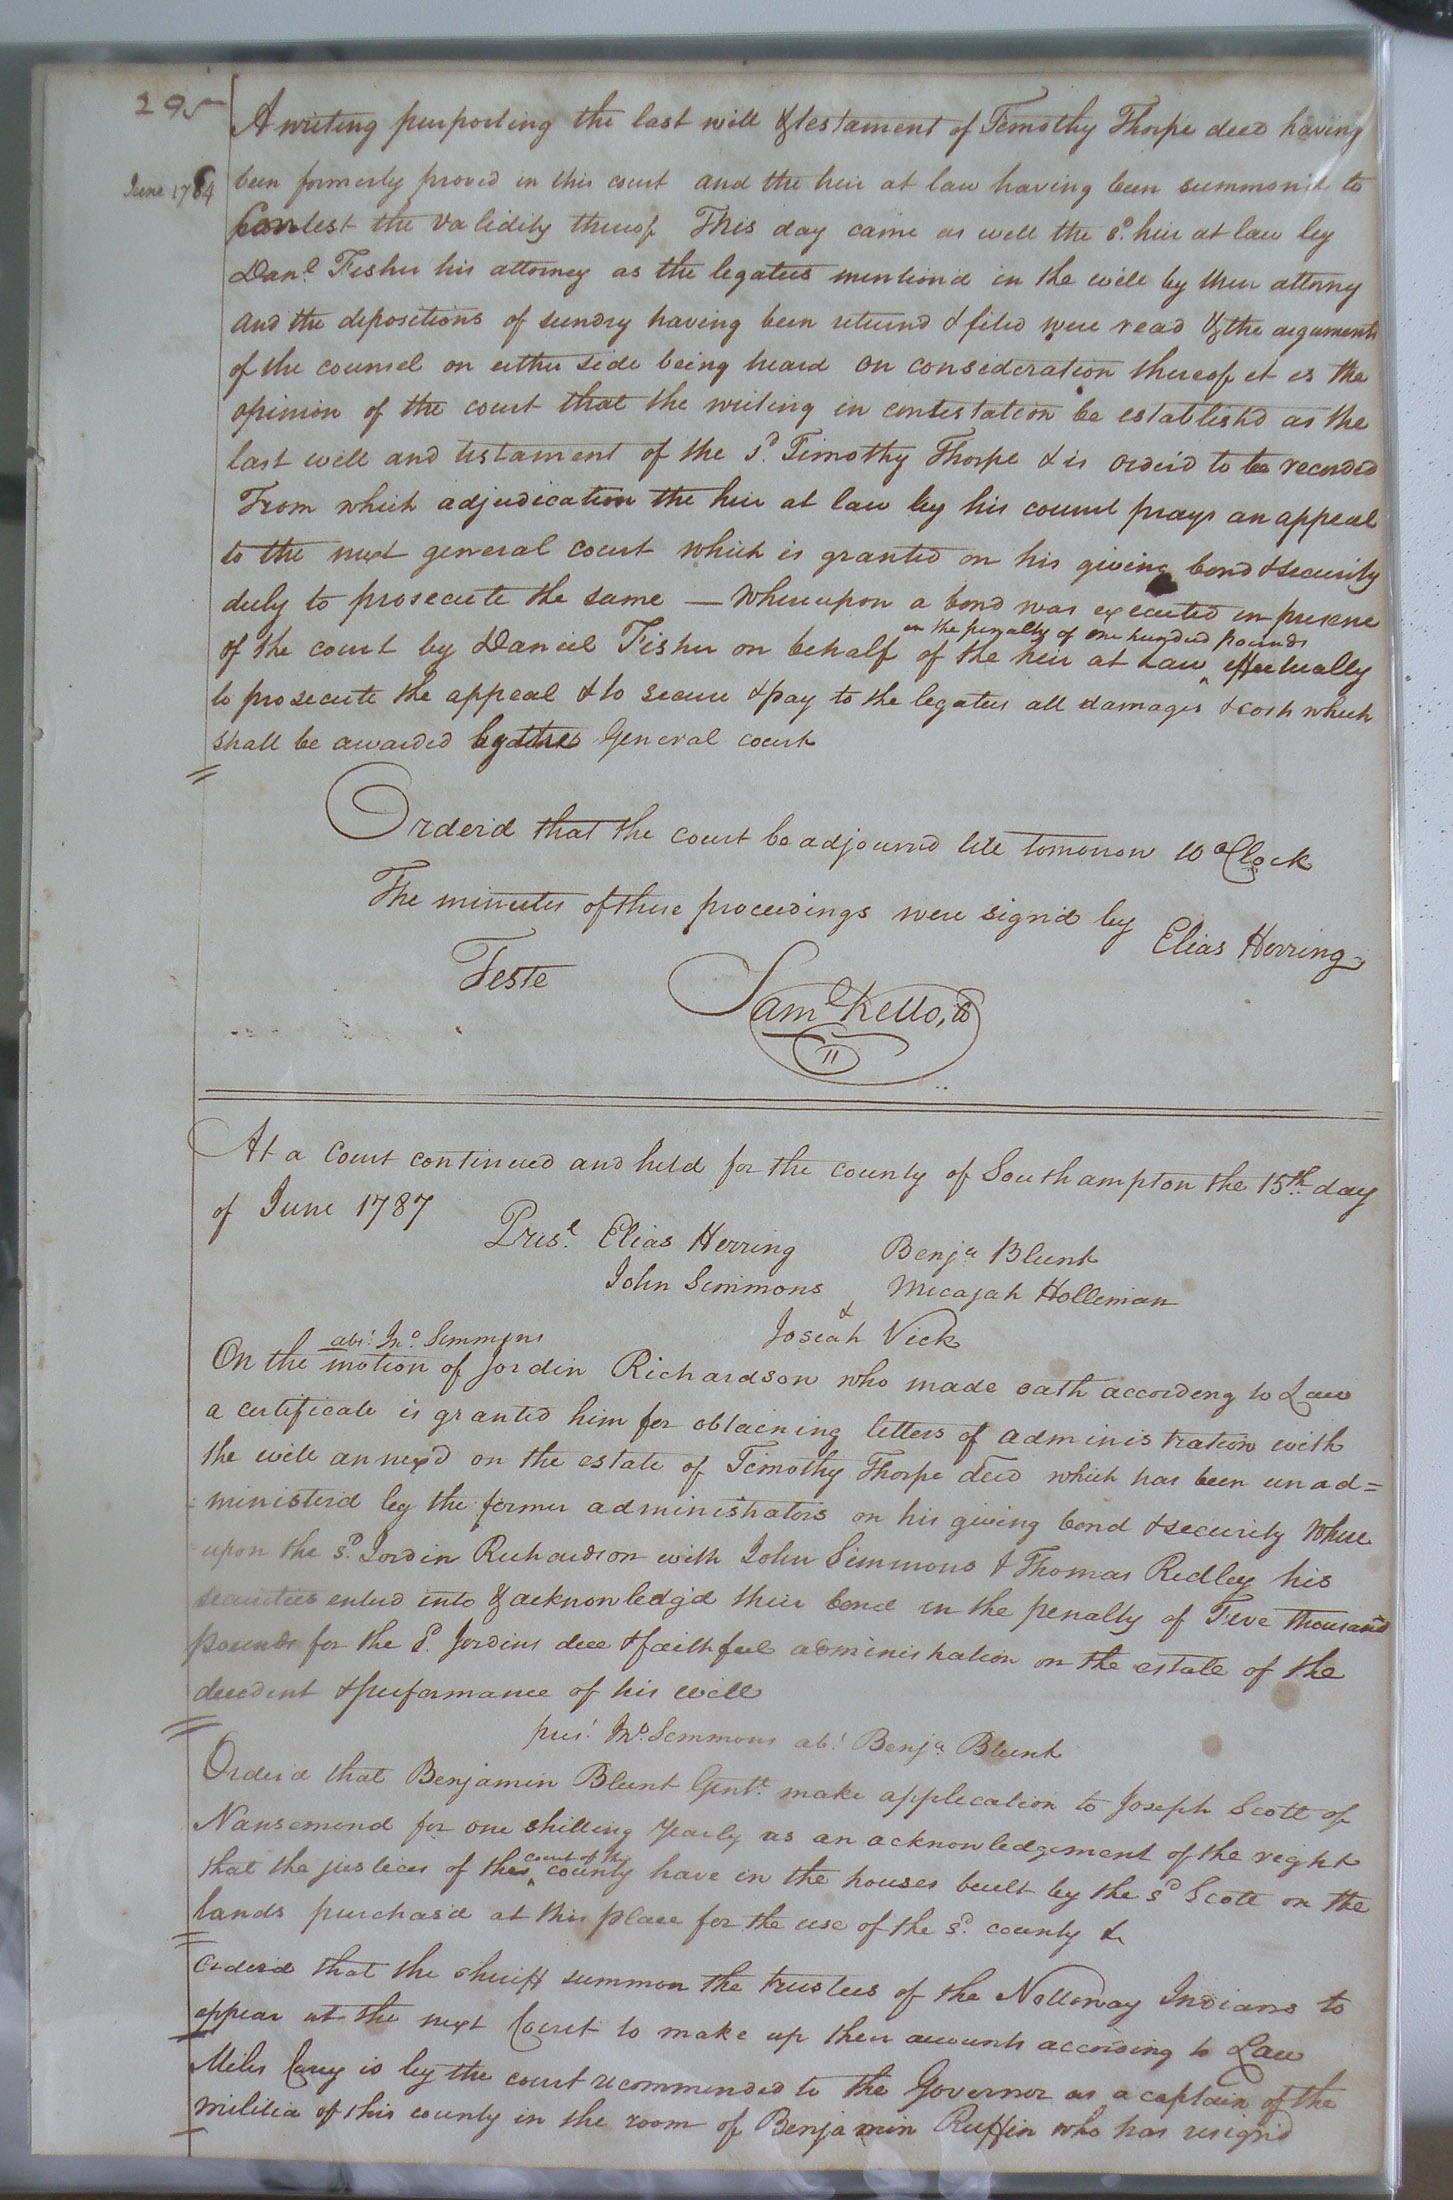 295
A writing purporting the last will & testament of Timothy Thorpe decd having
June 1784
been formerly proved in this court and the heir at law having been summon'd to
Contest the validity thereof This day came as well the sd. heir at law by
Danl Fisher his attorney as the legatees mention'd in the will by their attorny
and the depositions of sundry having been returnd & filed were read & the arguments
of the counsel on either side being heard on consideration thereof it is the
opinion of the court that the writing in contestation be establish'd as the
last will and testament of the sd. Timothy Thorpe & is order'd to be recorded
From which adjudication the heir at law by his council prays an appeal
to the next general court which is granted on his giving bond & security
duly to prosecute the same — Whereupon a bond was executed in presence
in the penalty of one hundred pounds
of the court by Daniel Fisher on behalf of the heir at Law ‸ effectually
to prosecute the appeal & to secure & pay to the legatees all damages & costs which
shall be awarded by the General court
Orderd that the court be adjournd till tomorrow 10 oClock
The minutes of these proceedings were signd by Elias Herring
Teste Saml Kello,
At a Court continued and held for the county of Southampton the 15th day
of June 1787
Prest. Elias Herring Benja Blunt
John Simmons Micajah Holleman
&
Josiah Vick
abst. Jno. Simmons
On the motion of Jordin Richardson who made oath according to Law
a certificate is granted him for obtaining letters of administration with
the will annexd on the estate of Timothy Thorpe decd which has been unad=
=ministerd by the former administrators on his giving bond & security Where
upon the sd. Jordin Richardson with John Simmons & Thomas Ridley his
securities enterd into & acknowledg'd their bond in the penalty of Five thousand
pounds for the sd. Jordins due & faithful administration on the estate of the
decedent & performance of his will
prest. Jno. Simmons abt. Benja. Blunt
Orderd that Benjamin Blunt Gentl. make application to Joseph Scott of
Nansemond for one shilling yearly as an acknowledgement of the right
court of the
that the justices of the ‸ county have in the houses built by the sd Scott on the
lands purchasd at this place for the use of the sd. county &
Orderd that the sheriff summon the trustees of the Nottoway Indians to
appear at the next Court to make up their accounts according to Law
Miles Cary is by the court recommended to the Governor as a captain of the
militia of this county in the room of Benjamin Ruffin who has resignd